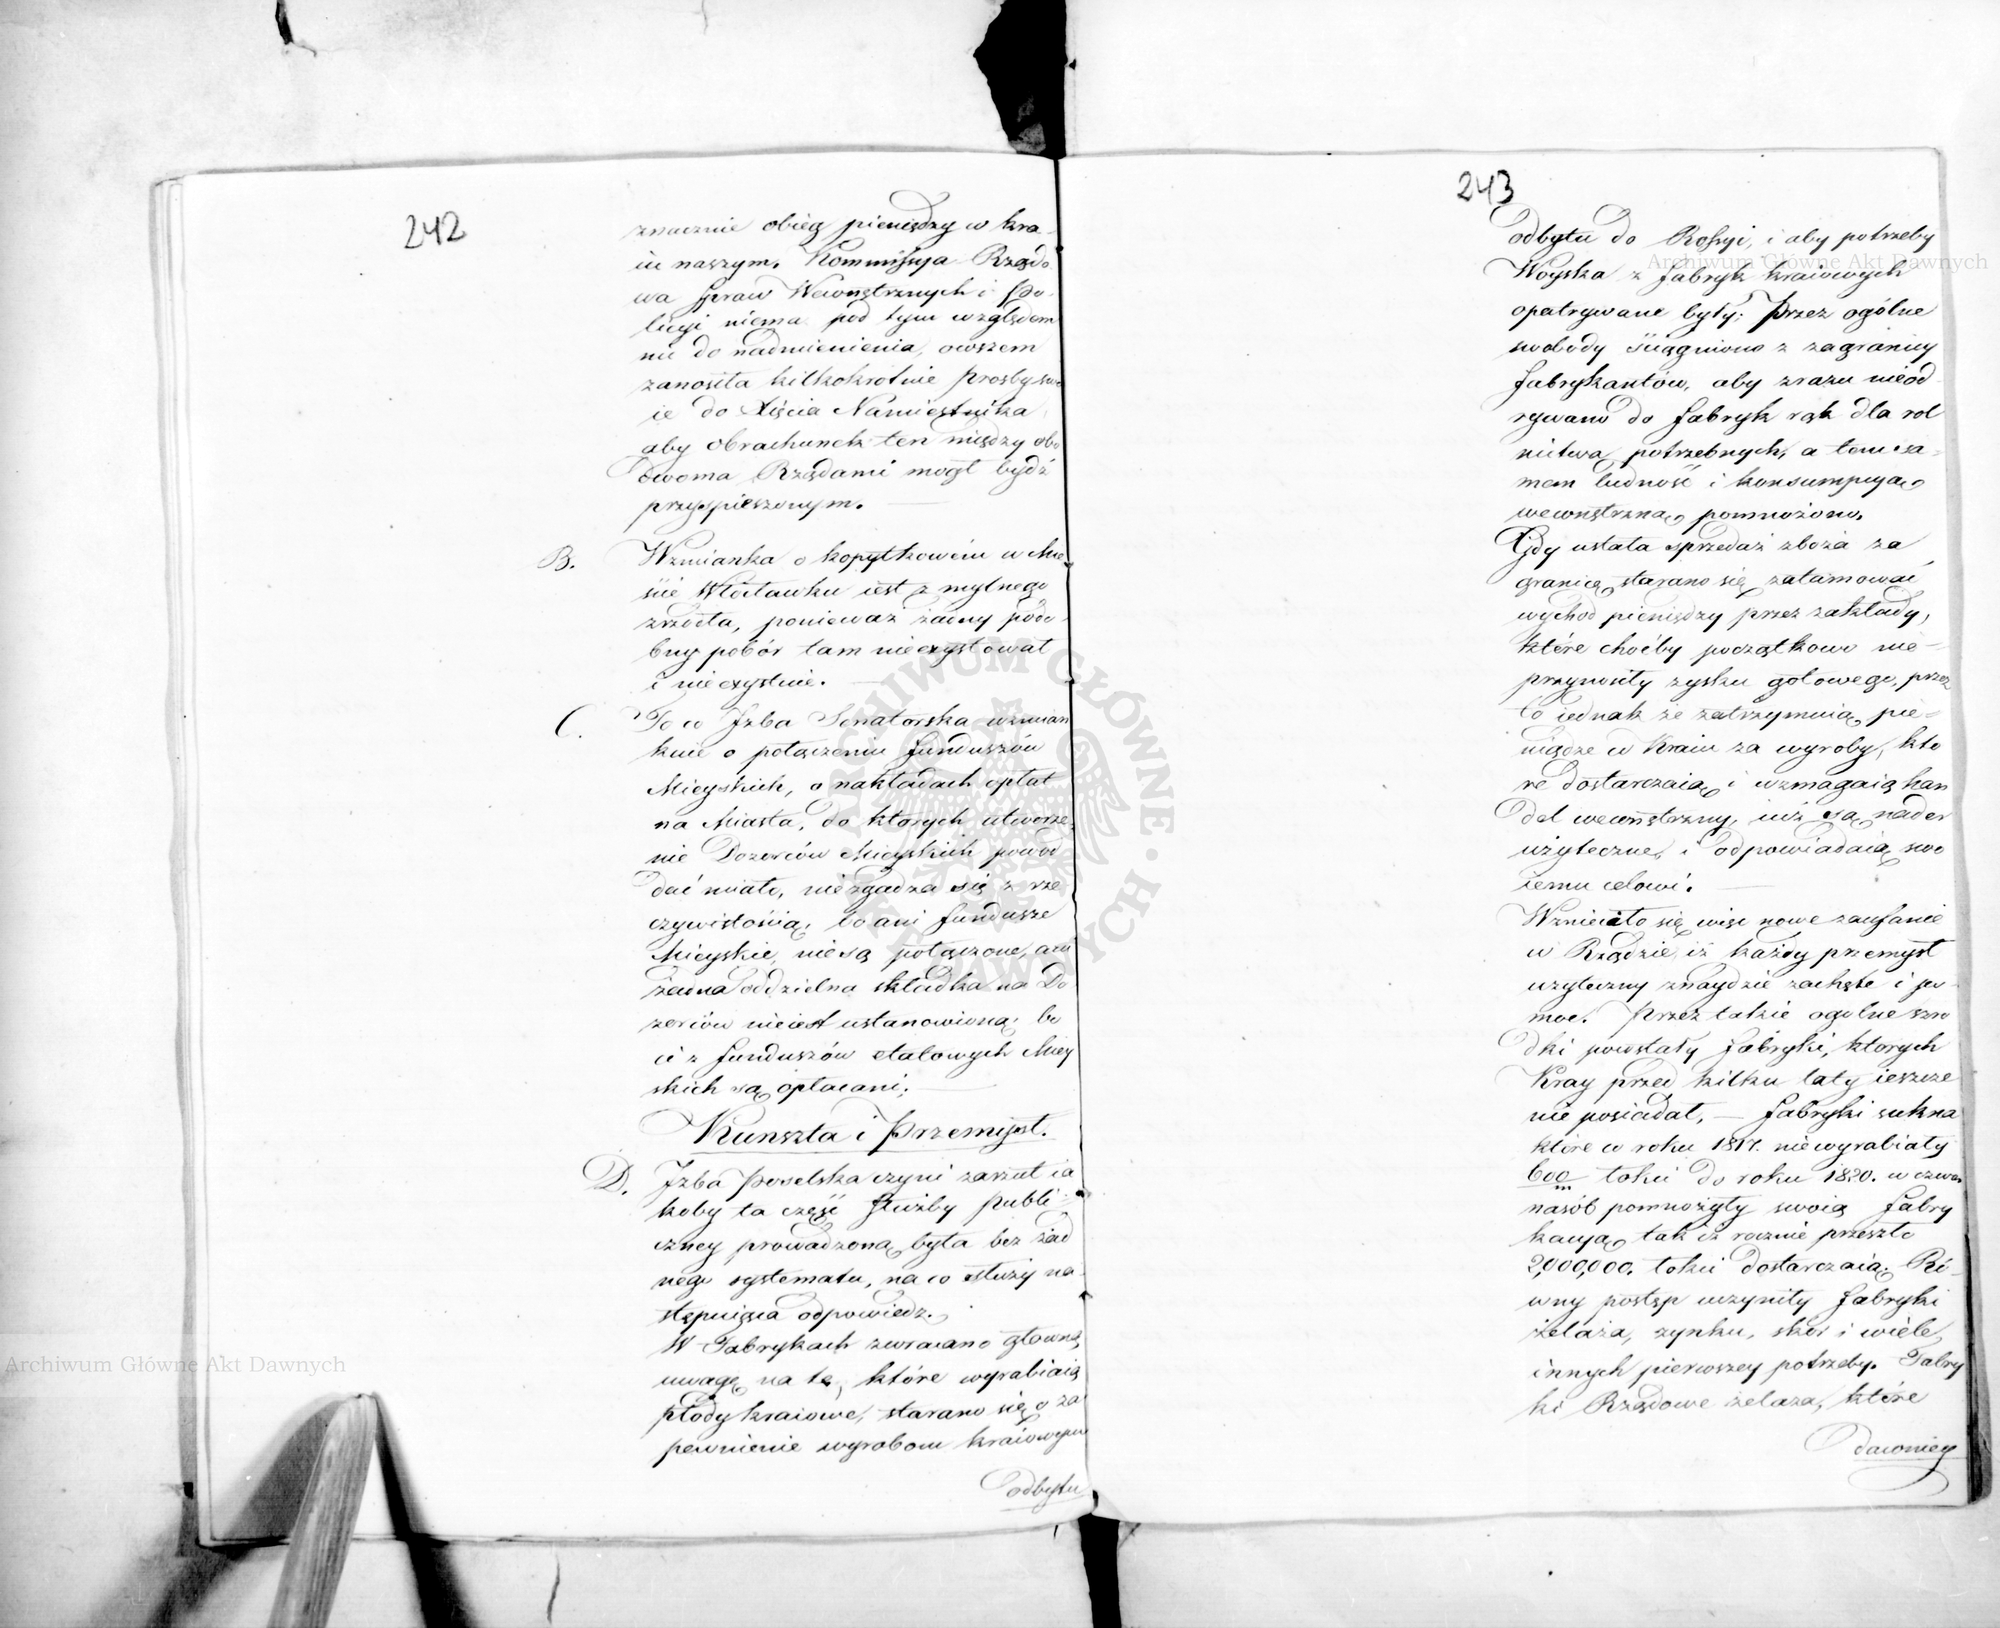 242
znacznie obieg pieniędzy w kra-
iu naszym. Kommissya Rządo
wa Spraw Wewnętrznych i Po-
licyi niema pod tym względem
nic do nadmienienia, owszem
zanosiła kilkokrotnie prosby swo
ie do Xięcia Namiestnika
aby obrachunek ten między obo
dwoma Rządami mogł bydź
przyspieszonym.
B. Wzmianka o kopytkowém w Mie
ście Włocławku iest z mylnego
zrzódła, ponieważ żadny podo-
bny pobór tam nieexystował
i nieexystuie.
C. To co Izba Senatorska wzmian
kuie o połączeniu funduszów
Mieyskich, o nakładach opłat
na Miasta, do ktorych utworze-
nie Dozorców Mieyskich powod
dać miało, niezgadza się z rze
czywistością, bo ani fundusze
Mieyskie, niesą połączone, ani
żadna oddzielna składka na Do
zorców nieiest ustanowioną; bo
ci z funduszów etatowych Miey
skich są opłacani;
Kunszta i Przemysł.
D. Izba Poselska czyni zarzut ia
koby ta część służby Publi-
czney prowadzona była bez żad
nego systematu, na co służy na-
stępuiąca odpowiedz.
W Fabrykach zwracano głowną
uwagę na te, które wyrabiaią
płody kraiowe, starano się o za
pewnienie wyrobom kraiowym
odbytu
243
odbytu do Rossyi, i aby potrzeby
Woyska z fabryk kraiowych
opatrywane były; Przez ogólne
swobody ściągniono z zagranicy
fabrykantów, aby zrazu nieod-
rywano do fabryk rąk dla rol
nictwa potrzebnych, a tem sa-
mem ludność i konsumpcyą
wewnętrzną pomnożono.
Gdy ustała sprzedaż zboża za
granicę, starano się zatamować
wychod pieniędzy przez zakłady,
które choćby początkowo nie-
przynosiły zysku gotowego, przez
to iednak że zatrzymuią pie-
niądze w Kraiu za wyroby, któ
re dostarczaią i wzmagaią han
del wewnętrzny, iuż są nader
użyteczne, i odpowiadaią swo
iemu celowi.
Wznieciło się więc nowe zaufanie
w Rządzie, iż każdy przemysł
użyteczny znaydzie zachętę i po-
moc. Przez takie ogolne szro
dki powstały fabryki, ktorych
Kray przed kilku laty ieszcze
nie posiadał, — fabryki sukna
które w roku 1817. niewyrabiały
600 łokci do roku 1820. w czwór
nasób pomnożyły swoią fabry
kacyą, tak iż rocznie przeszło
2,000,000. łokci dostarczaią. Ró-
wny postęp uczyniły fabryki
żelaza, zynku, skór i wiele
innych pierwszey potrzeby. Fabry
ki Rządowe żelaza, które
dawniey
Archiwum Główne Akt Dawnych
Archiwum Główne Akt Dawnych
ARCHIWUM GŁÓWNE AKT DAWNYCH